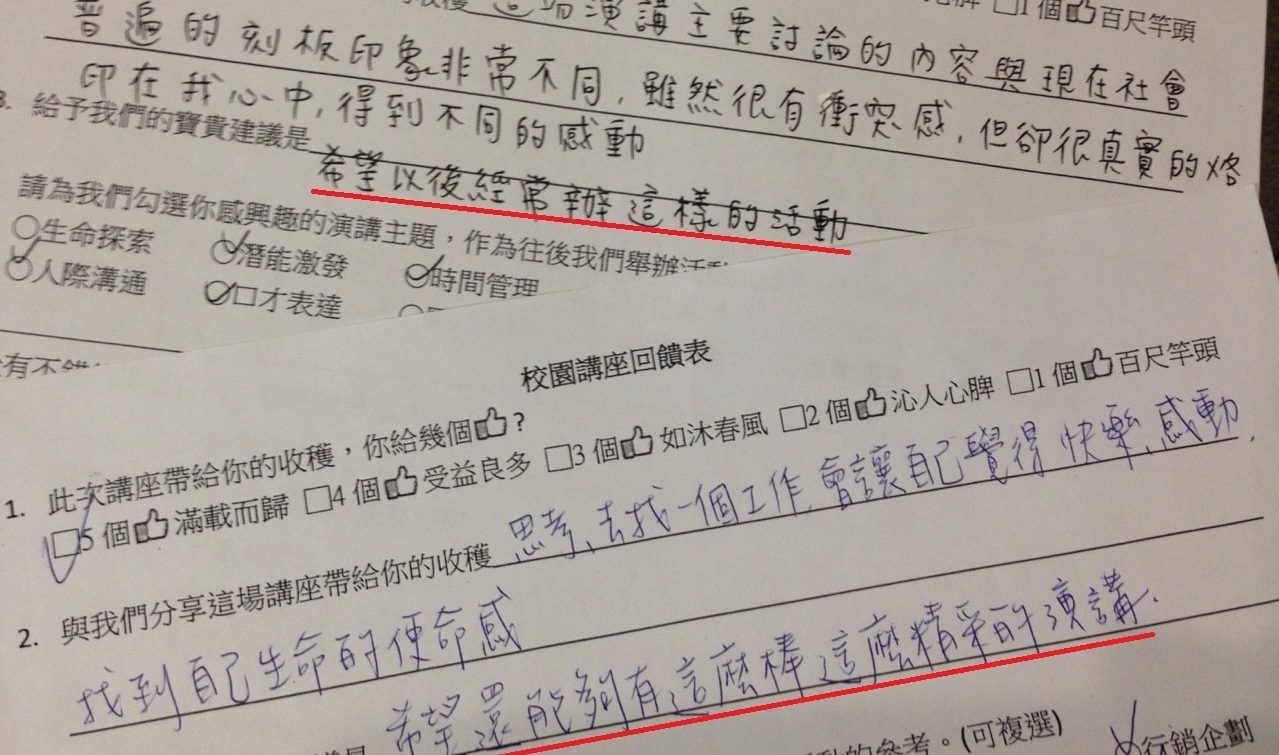 □1 個 百尺竿頭
這場演講主要討論的內容與現在社會
普遍的刻板印象非常不同，雖然很有衝突感，但卻很真實的烙
印在我心中，得到不同的感動
3. 給予我們的寶貴建議是 希望以後經常辦這樣的活動
請為我們勾選你感興趣的演講主題，作為往後我們舉辦活動
○生命探索 ○潛能激發 ○時間管理
○人際溝通 ○口才表達
有不錯
校園講座回饋表
1. 此次講座帶給你的收穫，你給幾個 ?
□5 個 滿載而歸 □4 個 受益良多 □3 個 如沐春風 □2 個 沁人心脾 □1 個 百尺竿頭
2. 與我們分享這場講座帶給你的收穫 思考、去找一個工作，會讓自己覺得快樂、感動，
找到自己生命的使命感
希望還能夠有這麼棒這麼精采的演講.
的參考。(可複選)
行銷企劃